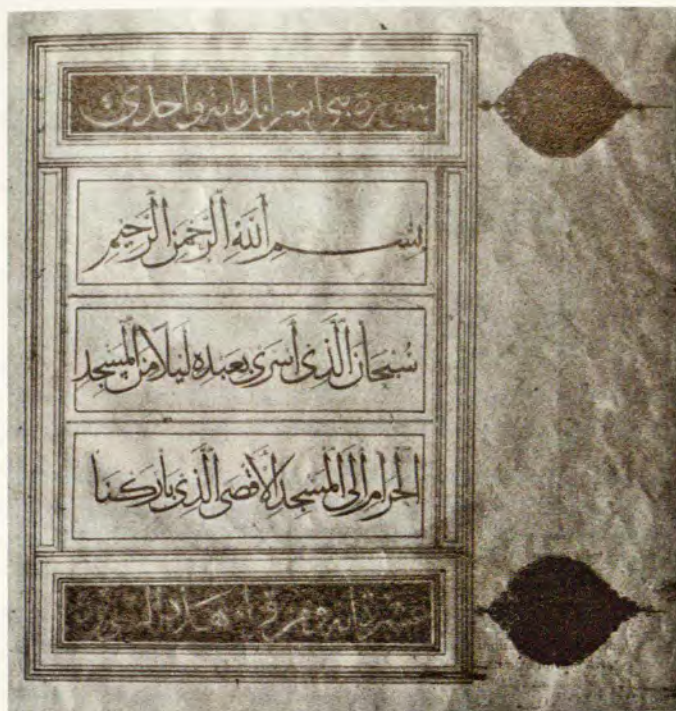 سورة بني اسرائيل مائة واحدى
بِسْمِ ٱللَّهِ ٱلرَّحْمٰنِ ٱلرَّحِيمِ
سُبْحَانَ ٱلَّذِى أَسْرَى بِعَبْدِهِ لَيْلًا مِنَ ٱلْمَسْجِدِ
ٱلْحَرَامِ إِلَى ٱلْمَسْجِدِ ٱلْأَقْصَى ٱلَّذِى بَارَكْنَا
عشرة اية